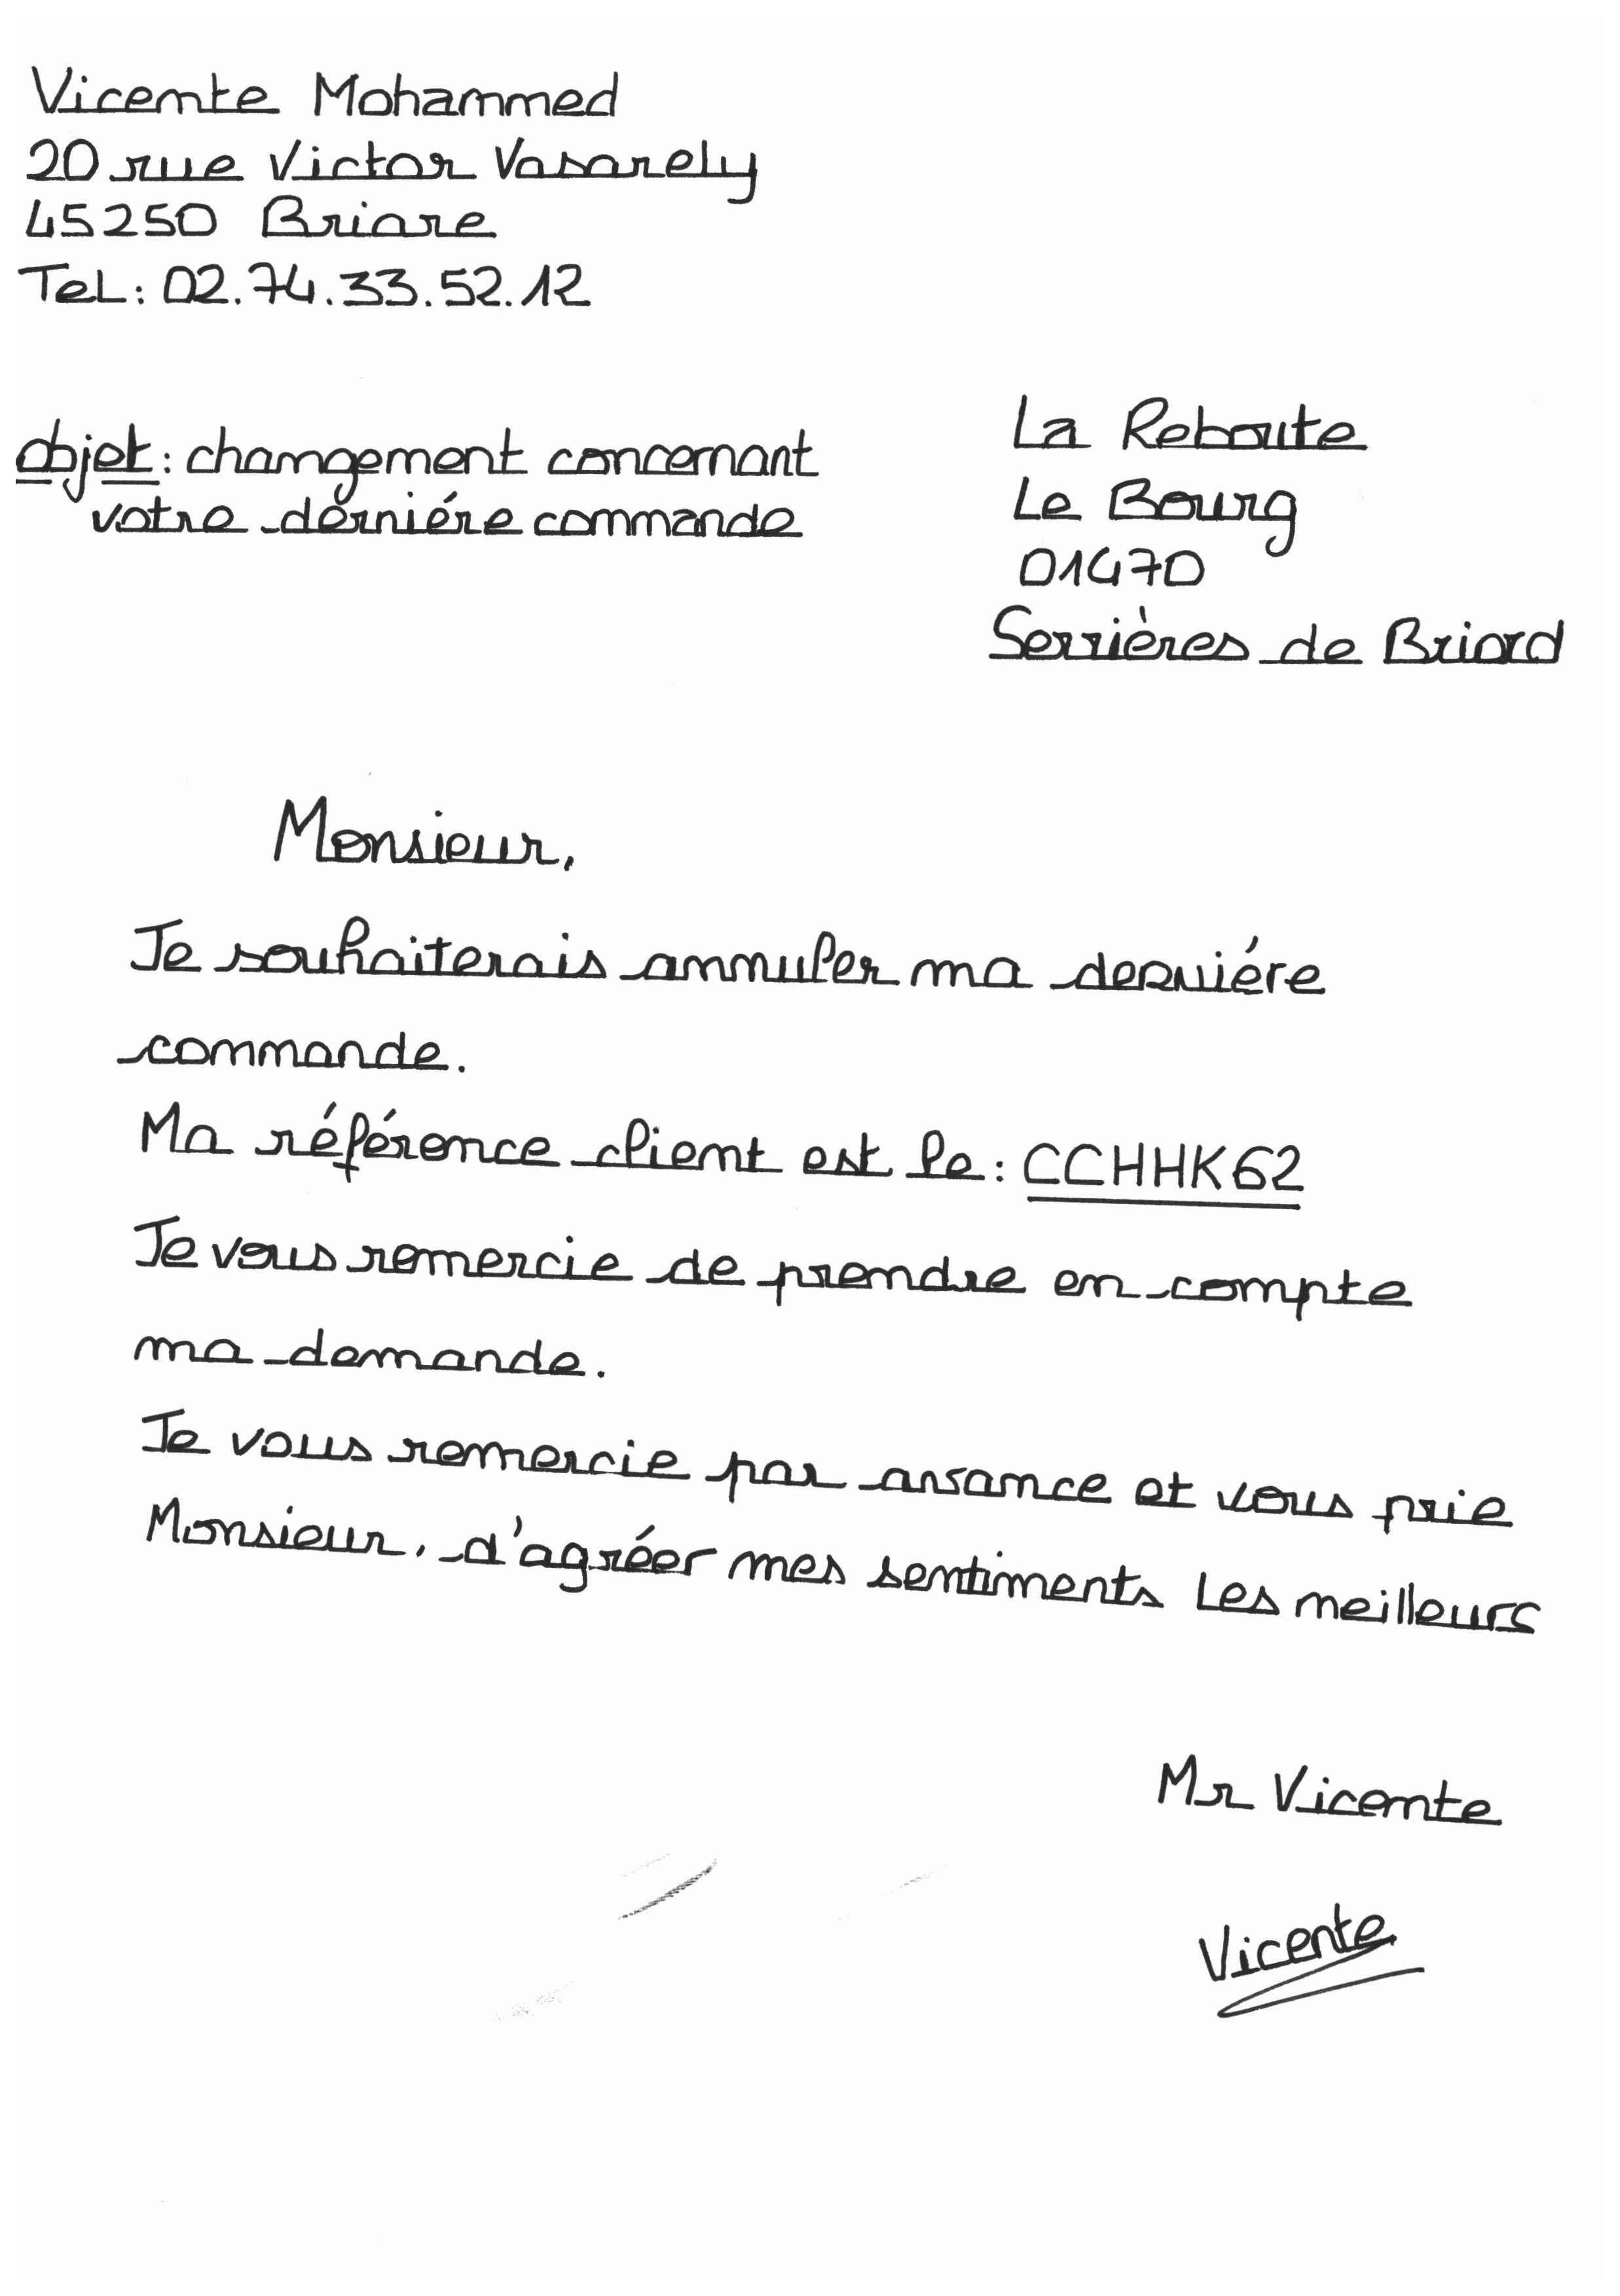 Vicente Mohammed
20 rue Victor Vasarely
45250 Briare
Tel: 02.74.33.52.12
objet: changement concernant
votre derniére commande
La Reboute
Le Bourg
01470
Serrières de Briord
Monsieur,
Je souhaiterais annuler ma derniére
commande.
Ma référence client est le: CCHHK62
Je vous remercie de prendre en compte
ma demande.
Je vous remercie par avance et vous prie
Monsieur, d'agréer mes sentiments les meilleurs
Mr Vicente
Vicente